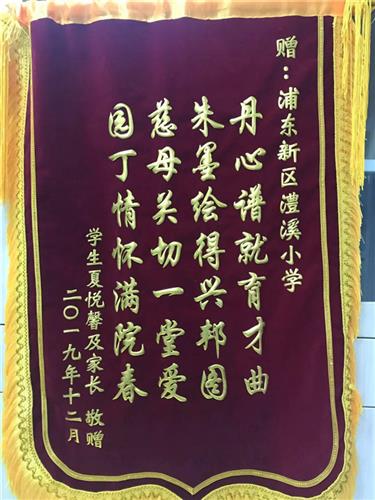 赠：浦东新区澧溪小学
丹心谱就育才曲
朱墨绘得兴邦图
慈母关切一堂爱
园丁情怀满院春
学生夏悦馨及家长 敬赠
二〇一九年十二月